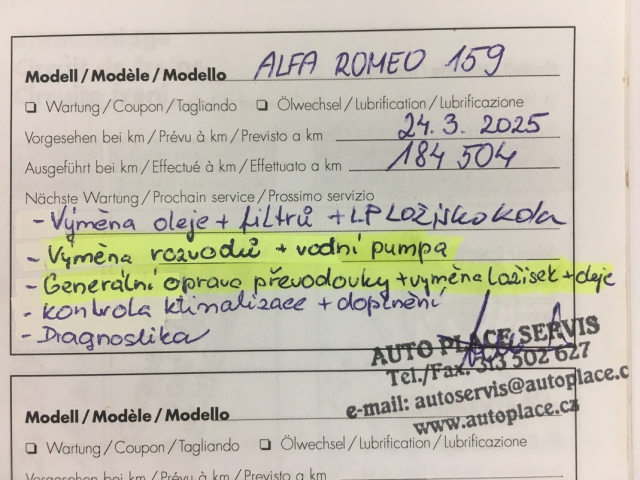 Modell/Modèle/Modello ALFA ROMEO 159
Wartung/Coupon/Tagliando Ölwechsel/Lubrification/Lubrificazione
Vorgesehen bei km/Prévu à km/Previsto a km 24.3. 2025
Ausgeführt bei km/Effectué à km/Effettuato a km 184 504
Nächste Wartung/Prochain service/Prossimo servizio
- Výměna oleje + filtrů + LP Ložisko kola
- Výměna rozvodů + vodní pumpa
- Generální oprava převodovky + výměna ložisek + oleje
- kontrola klimatizace + doplnění
- Diagnostika
AUTO PLACE SERVIS
Tel./Fax. 313 502 627
e-mail: autoservis@autoplace.c
www.autoplace.cz
Modell/Modèle/Modello
Wartung/Coupon/Tagliando Ölwechsel/Lubrification/Lubrificazione
Vorgesehen bei km/Prévu à km/Previsto a km